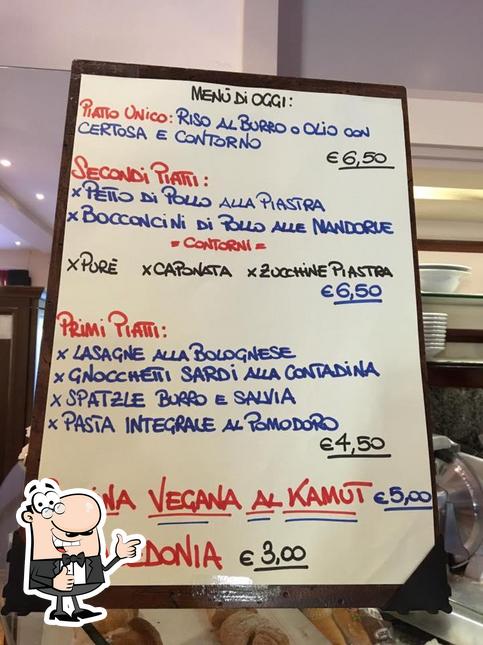 MENÙ DI OGGI:
PIATTO UNICO: RISO AL BURRO O OLIO CON
CERTOSA E CONTORNO
€ 6,50
SECONDI PIATTI:
x PETTO DI POLLO ALLA PIASTRA
x BOCCONCINI DI POLLO ALLE MANDORLE
= CONTORNI =
x PURÈ x CAPONATA x ZUCCHINE PIASTRA
€ 6,50
PRIMI PIATTI:
x LASAGNE ALLA BOLOGNESE
x GNOCCHETTI SARDI ALLA CONTADINA
x SPATZLE BURRO E SALVIA
x PASTA INTEGRALE AL POMODORO
€ 4,50
VEGANA AL KAMUT € 5,00
€ 3,00